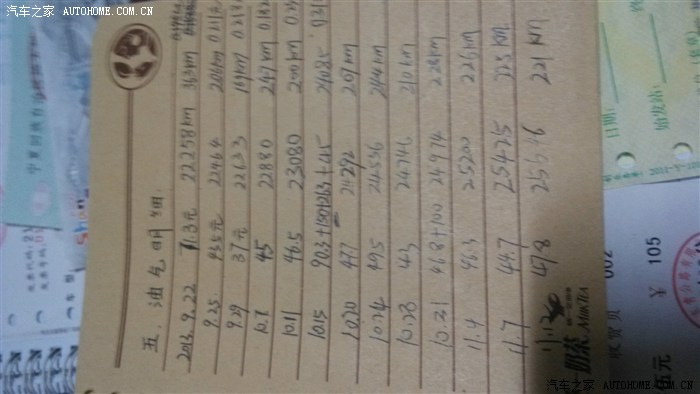 汽车之家
AUTOHOME.COM.CN
五. 油气明细.
2013.9.22 71.3元 22258km 363km
9.25 43.5元 22464 206km
9.29 37元 22633 169km
10.7 45 22880 247km
10.11 46.5 23080 200km
10.15 90.3+180+263+45 24085
10.20 47.7 24292 207km
10.24 49.5 24536 244km
10.28 43 24746 210km
10.31 46.8+100 24974 228km
11.4 46.3 25200 226km
11.7 44.7 25425 225km
11.12 47.8 25646 221km
奶茶 MilkTea
日期:
始发站:
收费员 002
¥ 105
伍元
汽车之家
AUTOHOME.COM.CN